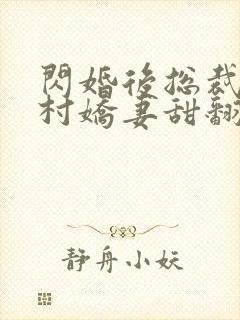 閃婚後总裁
村嬌妻甜翻
静舟小妖